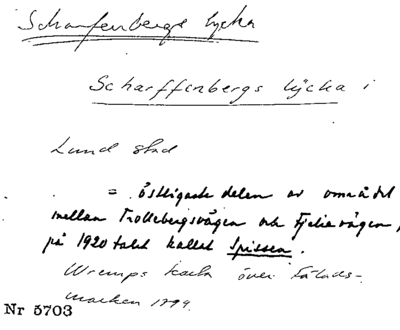 Scharfenbergs lycka
Scharffenbergs lycka i
Lund stad
= östligaste delen av området
mellan Trollebergsvägen och Fjelievägen,
på 1920 talet kallet Spissen.
Wremps karta över Fälads-
marken 1799.
Nr 5703